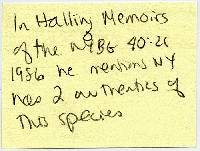 In Halling Memoirs
of the NYBG 40:21
1986 he mentions NY
has 2 authentics of
This species